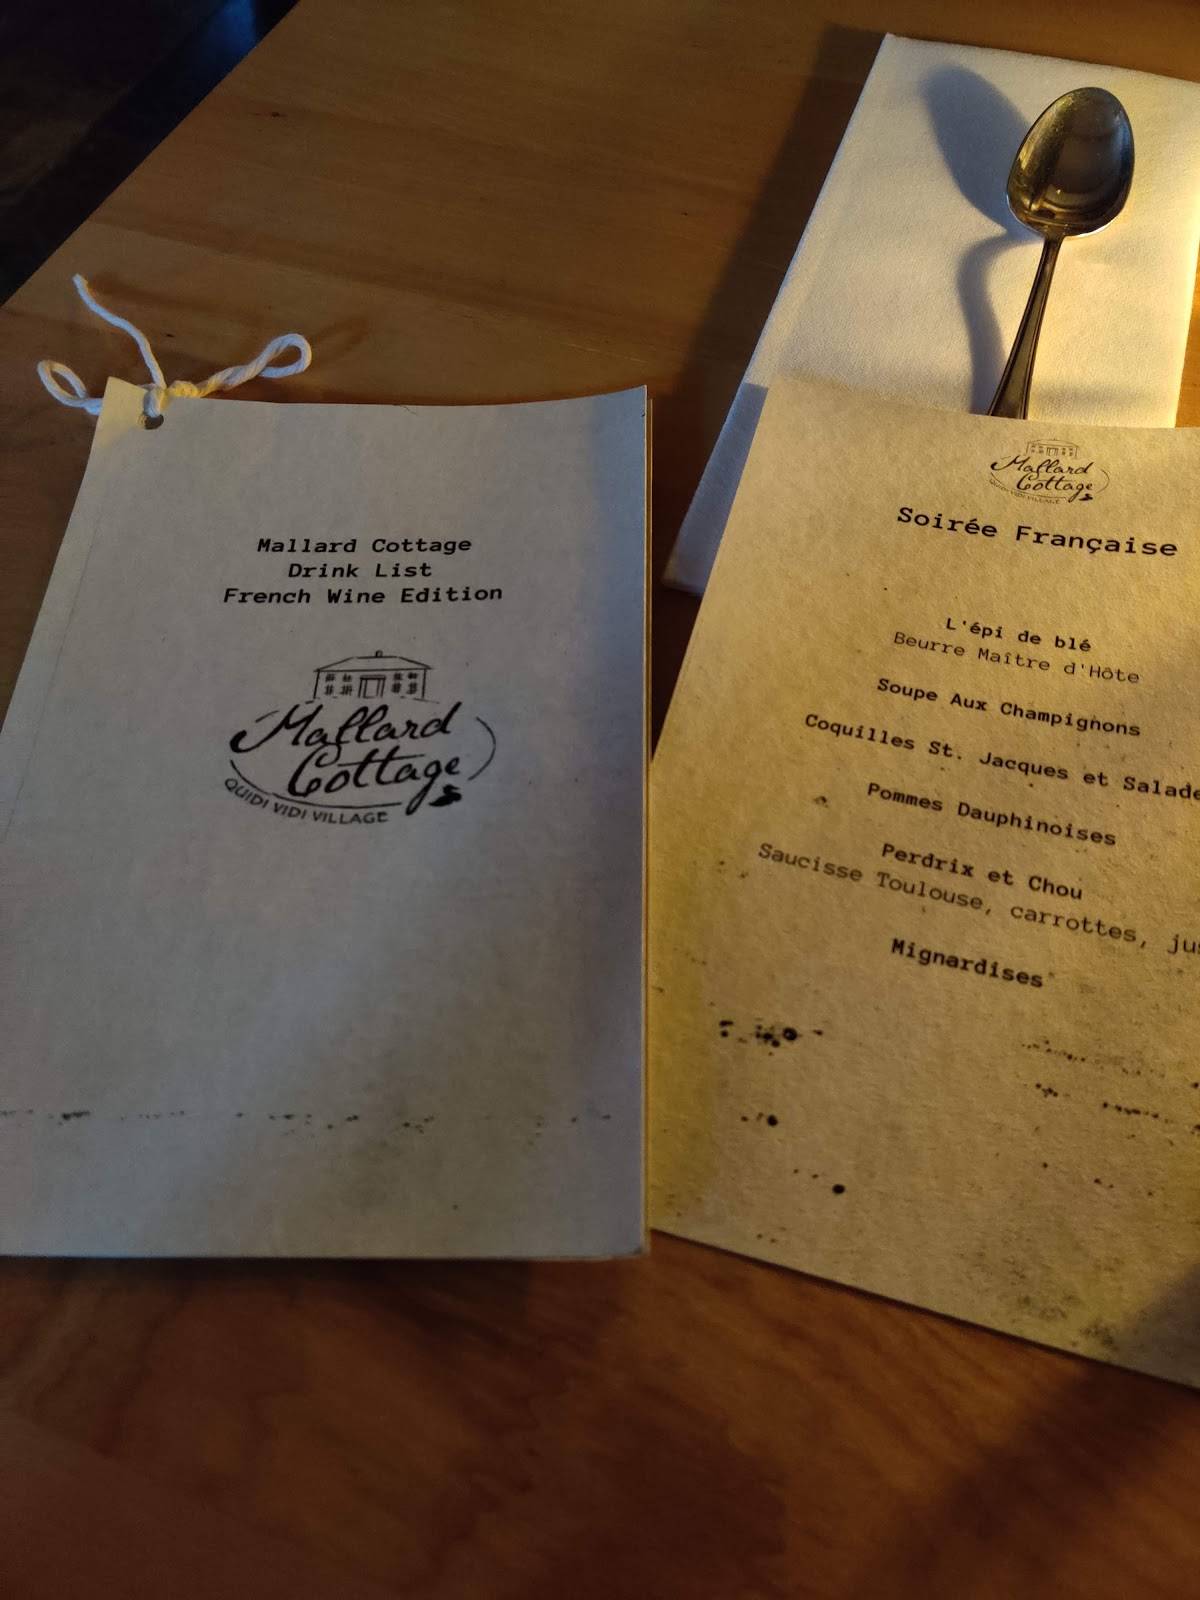 Mallard Cottage
Drink List
French Wine Edition
Mallard
Cottage
QUIDI VIDI VILLAGE
Mallard
Cottage
QUIDI VIDI VILLAGE
Soirée Française
L'épi de blé
Beurre Maître d'Hôte
Soupe Aux Champignons
Coquilles St. Jacques et Salade
Pommes Dauphinoises
Perdrix et Chou
Saucisse Toulouse, carrottes, jus
Mignardises